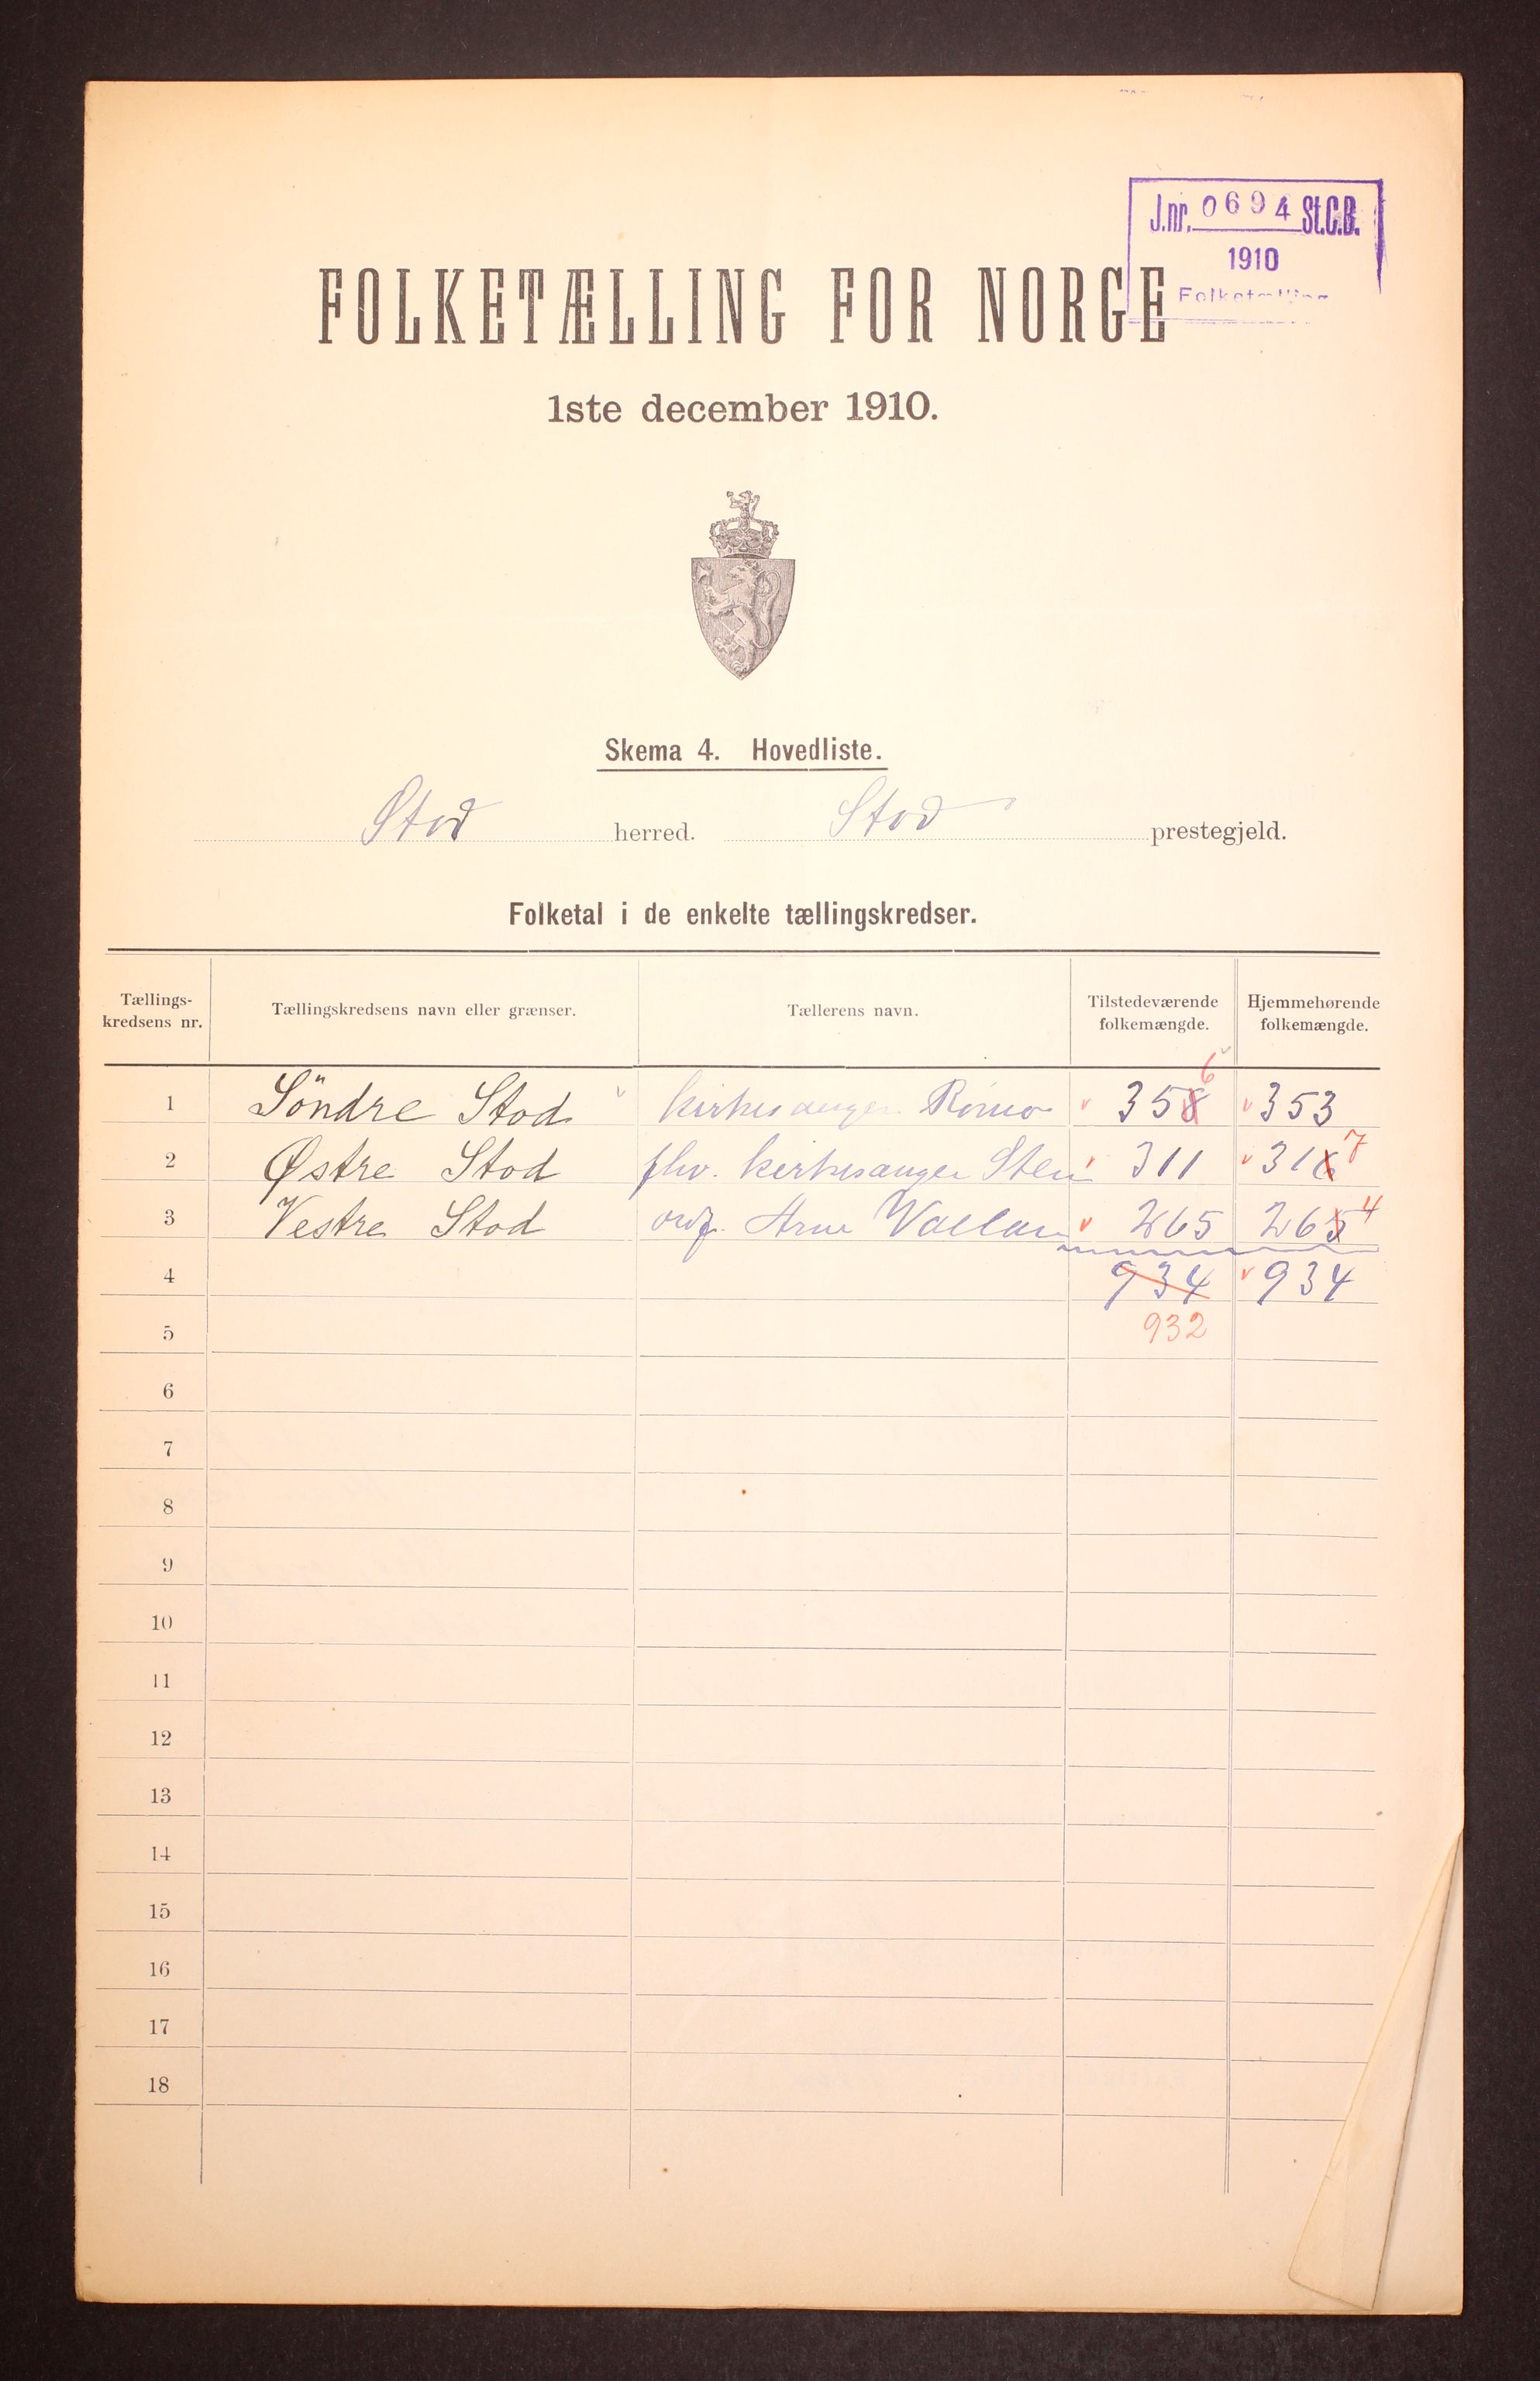 J.nr. 0694 St.C.B.
1910
Folketælling
FOLKETÆLLING FOR NORGE
1ste december 1910.
Skema 4. Hovedliste.
Stod herred. Stod prestegjeld.
Folketal i de enkelte tællingskredser.
Tællings-
kredsens nr.
Tællingskredsens navn eller grænser.
Tællerens navn.
Tilstedeværende
folkemængde.
Hjemmehørende
folkemængde.
1 Söndre Stod kirkesanger 358 6 353
2 Østre Stod fhv. kirkesanger 311 316 7
3 Vestre Stod Arne 265 265 4
4 934 934
5 932
6
7
8
9
10
11
12
13
14
15
16
17
18